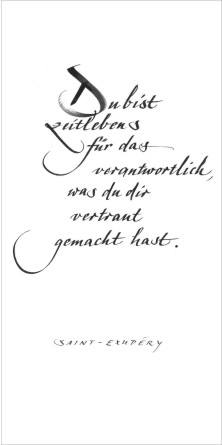 Du bist
zeitlebens
für das
verantwortlich,
was du dir
vertraut
gemacht hast.
SAINT-EXUPÉRY